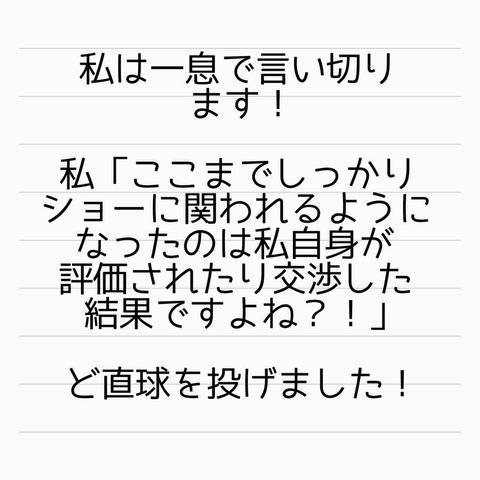 私は一息で言い切り
ます！
私「ここまでしっかり
ショーに関われるように
なったのは私自身が
評価されたり交渉した
結果ですよね？！」
ど直球を投げました！